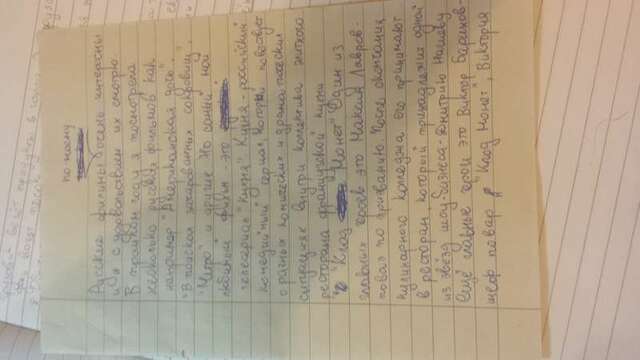 по-моему
Русские фильмы очень интересны
и я с удовольствием их смотрю.
В прошлом году я посмотрела
несколько русских фильмов как
например "Американская дочь".
"В поисках захороненных сокровищ"
"Метро" и другие. Но самый мой
любимый фильм - это
телесериал "Кухня". Кухня - российский
комедийный сериал, который повествует
о разных комических и драматических
ситуациях внутри коллектива элитного
ресторана французской кухни
"Клод Моне". Один из
главных героев это Максим Лавров-
повар по призванию. После окончания
кулинарного колледжа его принимают
в ресторан, который принадлежит одной
из звёзд шоу-бизнеса - Дмитрию Нагиеву
Ещё главные герои это Виктор Баринов-
шеф повар "Клод Монет", Виктория